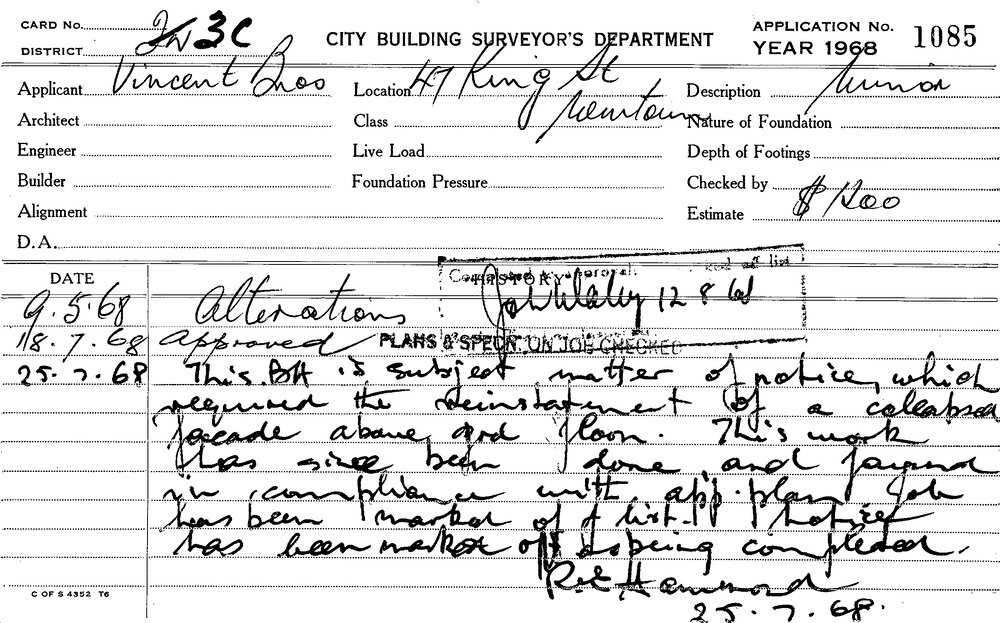 CARD No.
2W 3C
DISTRICT
CITY BUILDING SURVEYOR'S DEPARTMENT
APPLICATION No. 1085
YEAR 1968
Applicant Vincent Bros
Location 47 King St
Newtown
Description Minor
Architect
Class
Nature of Foundation
Engineer
Live Load
Depth of Footings
Builder
Foundation Pressure
Checked by
Alignment
Estimate $ 1200
D.A.
DATE
HISTORY
12 8 68
9.5.68 Alterations
18.7.68 Approved PLANS & SPECN. ON JOB CHECKED
25.7.68 This BA is subject matter of notice, which
required the reinstatement of a collapsed
facade above grd floor. This work
has since been done and found
in compliance with app. plan Job
has been marked off list. Notice
has been marked off as being completed.
R.E Hammond
25.7.68.
C OF S 4352 T6